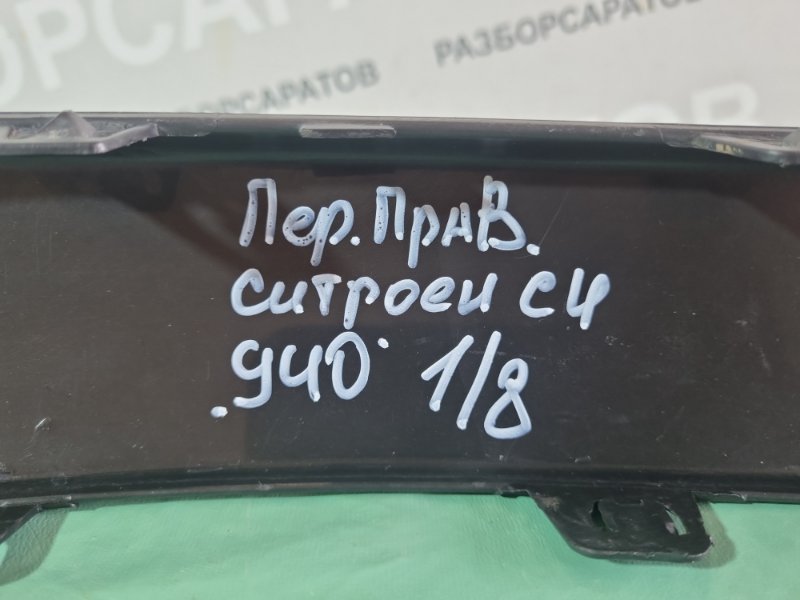 РАЗБОРСАРАТОВ
РАЗБОРСАРАТОВ
Пер. Прав.
Ситроен С4
.940 1/8